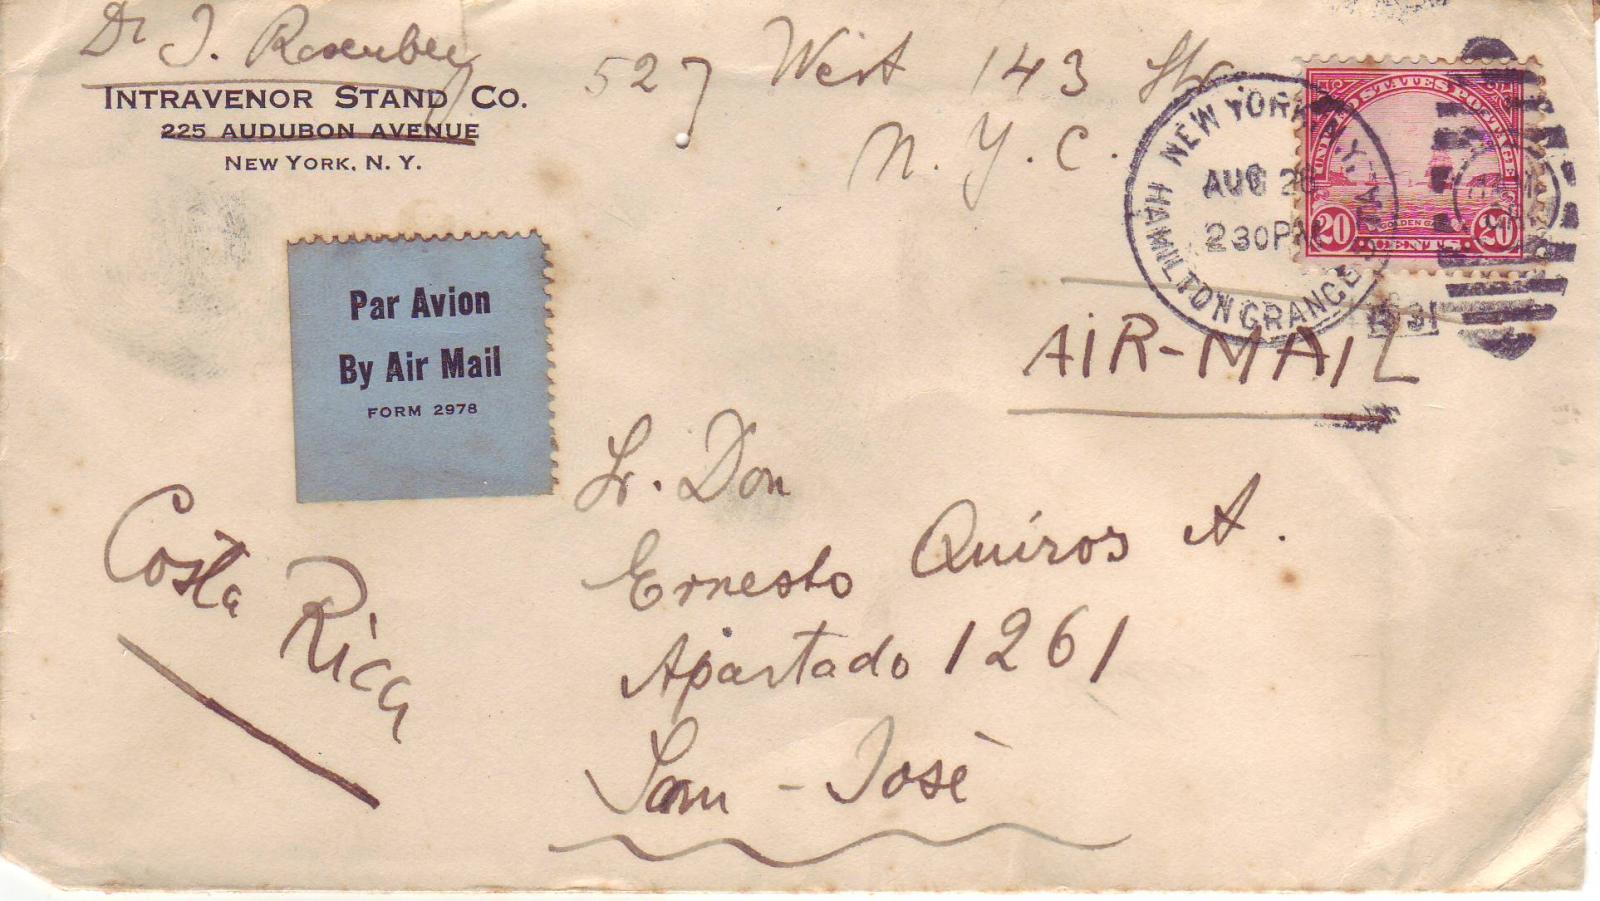 Dr J. Rosenberg
INTRAVENOR STAND CO.
225 AUDUBON AVENUE
NEW YORK, N. Y.
527 West 143 Str
N. Y. C.
NEW YORK, N.Y.
AUG 28
2 30 PM
HAMILTON GRANGE STA.
1931
UNITED STATES POSTAGE
GOLDEN GATE
20 CENTS 20
Par Avion
By Air Mail
FORM 2978
AIR-MAIL
Sr. Don
Ernesto Quiros A.
Apartado 1261
San-José
Costa Rica